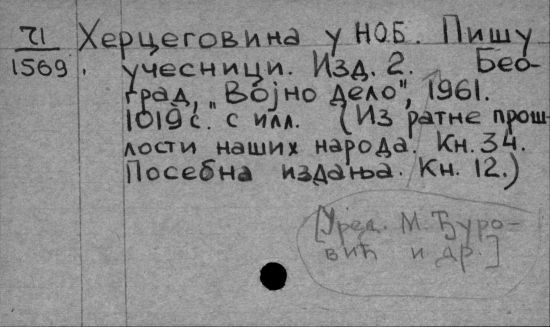 71 Херцеговина у НОБ. Пишу
1569. учесници. Изд. 2. Бео-
град, "Војно дело", 1961.
1019 с. с илл. (Из ратне прош-
лости наших народа. Кн. 34.
Посебна издања. Кн. 12.)
[Уред. М. Ђуро-
вић и др.]